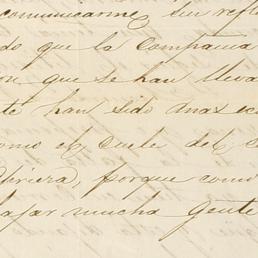 comunicarme, sin refle
do que la Compañia
on que se han lleva
te han sido mas ec
omo el cuele del c
briera, porque como
bajar mucha gente